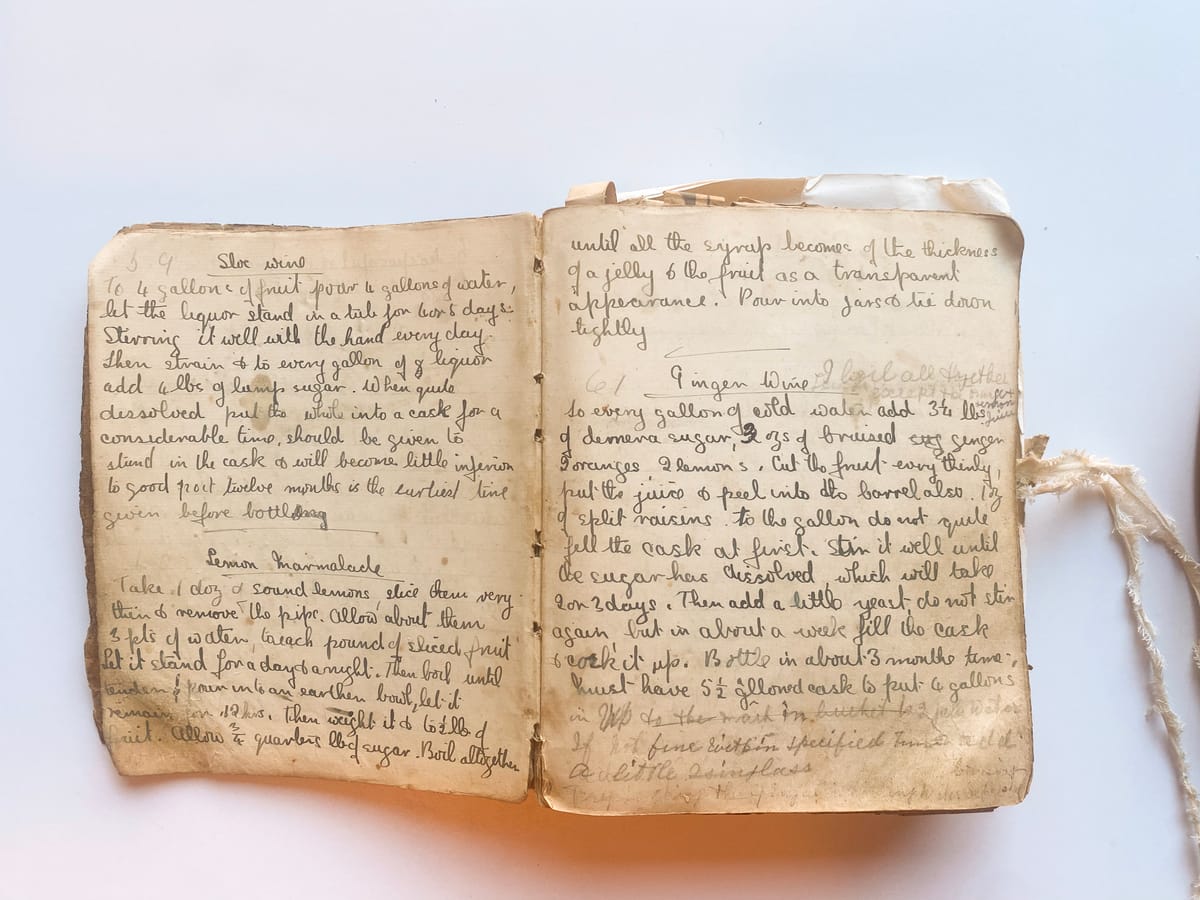 59 Sloe wine
To 4 gallons of fruit pour 4 gallons of water,
let the liquor stand in a tub for 4 or 5 days:
Sterring it well with the hand every day.
Then strain & to every gallon of liquor
add 4 lbs of lump sugar. When quite
dissolved put the whole into a cask for a
considerable time, should be given to
stand in the cask & will become little inferior
to good port twelve months is the earliest time
given before bottling
Lemon Marmalade
Take 1 doz of sound lemons, slice them very
thin & remove the pips. Allow about them
3 pts of water, to each pound of sliced fruit
Let it stand for a day & a night. Then boil until
tender & pour into an earthen bowl, let it
remain for 12 hrs. Then weight it & to lb of
fruit. Allow 3/4 quarters lb of sugar. Boil altogether
until all the syrup becomes of the thickness
of a jelly & the fruit as a transparent
appearance. Pour into jars & tie down
tightly
61 Ginger Wine I boil all together
To every gallon of cold water add 3¼ lbs
of demera sugar, 2 ozs of bruised sug ginger
5 oranges 2 lemons. Cut the fruit every thinly,
put the juice & peel into the barrel also. 1 oz
of split raisins. to the gallon do not quite
fill the cask at first. Stir it well until
the sugar has dissolved, which will take
2 or 3 days. Then add a little yeast, do not stir
again, but in about a week fill the cask
& cork it up. Bottle in about 3 months time.
Must have 5½ glloned cask to put 4 gallons
in to the mark in bucket is 2 water
If not fine within specified time add
a little isinglass